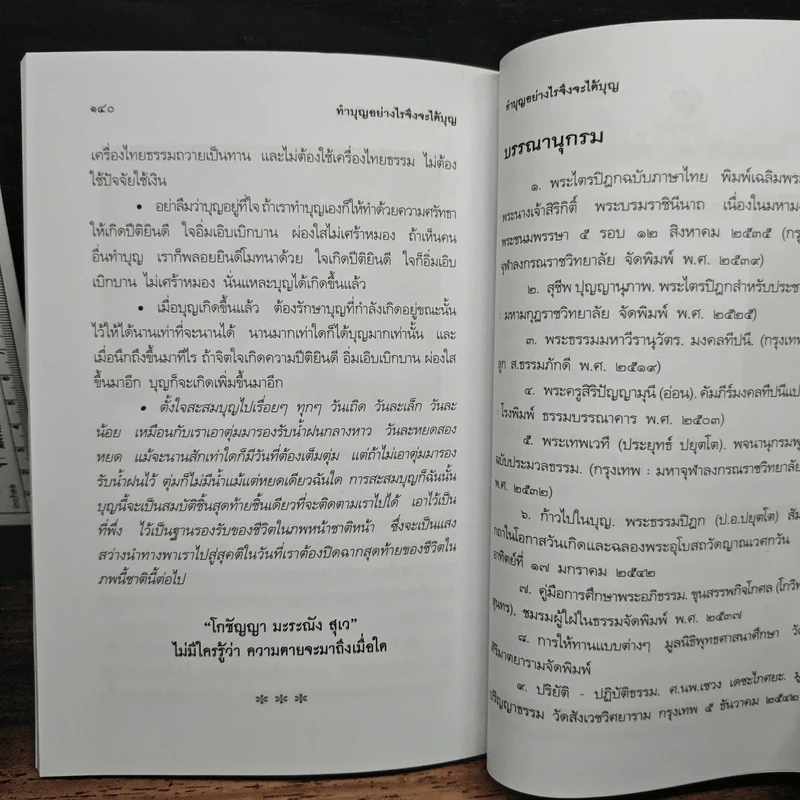 ๑๔๐
ทำบุญอย่างไรจึงจะได้บุญ
เครื่องไทยธรรมถวายเป็นทาน และไม่ต้องใช้เครื่องไทยธรรม ไม่ต้อง
ใช้ปัจจัยใช้เงิน
• อย่าลืมว่าบุญอยู่ที่ใจ ถ้าเราทำบุญเองก็ให้ทำด้วยความศรัทธา
ให้เกิดปีติยินดี ใจอิ่มเอิบเบิกบาน ผ่องใสไม่เศร้าหมอง ถ้าเห็นคน
อื่นทำบุญ เราก็พลอยยินดีโมทนาด้วย ใจเกิดปีติยินดี ใจก็อิ่มเอิบ
เบิกบาน ไม่เศร้าหมอง นั่นแหละบุญได้เกิดขึ้นแล้ว
• เมื่อบุญเกิดขึ้นแล้ว ต้องรักษาบุญที่กำลังเกิดอยู่ขณะนั้น
ไว้ให้ได้นานเท่าที่จะนานได้ นานมากเท่าใดก็ได้บุญมากเท่านั้น และ
เมื่อนึกถึงขึ้นมาทีไร ถ้าจิตใจเกิดความปีติยินดี อิ่มเอิบเบิกบาน ผ่องใส
ขึ้นมาอีก บุญก็จะเกิดเพิ่มขึ้นมาอีก
• ตั้งใจสะสมบุญไปเรื่อยๆ ทุกๆ วันเถิด วันละเล็ก วันละ
น้อย เหมือนกับเราเอาตุ่มมารองรับน้ำฝนกลางหาว วันละหยดสอง
หยด แม้จะนานสักเท่าใดก็มีวันที่ต้องเต็มตุ่ม แต่ถ้าไม่เอาตุ่มมารอง
รับน้ำฝนไว้ ตุ่มก็ไม่มีน้ำแม้แต่หยดเดียวฉันใด การสะสมบุญก็ฉันนั้น
บุญนี้จะเป็นสมบัติชิ้นสุดท้ายชิ้นเดียวที่จะติดตามเราไปได้ เอาไว้เป็น
ที่พึ่ง ไว้เป็นฐานรองรับของชีวิตในภพหน้าชาติหน้า ซึ่งจะเป็นแสง
สว่างนำทางพาเราไปสู่สุคติในวันที่เราต้องปิดฉากสุดท้ายของชีวิตใน
ภพนี้ชาตินี้ต่อไป
“โกชัญญา มะระณัง สุเว”
ไม่มีใครรู้ว่า ความตายจะมาถึงเมื่อใด
***
ทำบุญอย่างไรจึงจะได้บุญ
บรรณานุกรม
๑. พระไตรปิฎกฉบับภาษาไทย พิมพ์เฉลิมพระ
พระนางเจ้าสิริกิติ์ พระบรมราชินีนาถ เนื่องในมหามง
พระชนมพรรษา ๕ รอบ ๑๒ สิงหาคม ๒๕๓๕ (กรุ
จุฬาลงกรณราชวิทยาลัย จัดพิมพ์ พ.ศ. ๒๕๓๙)
๒. สุชีพ ปุญญานุภาพ. พระไตรปิฎกสำหรับประชา
: มหามกุฏราชวิทยาลัย จัดพิมพ์ พ.ศ. ๒๕๒๕)
๓. พระธรรมมหาวีรานุวัตร. มงคลทีปนี. (กรุงเทพ
ลูก ส.ธรรมภักดี พ.ศ. ๒๕๑๙)
๔. พระครูสิริปัญญามุนี (อ่อน). คัมภีร์มงคลทีปนีแป
: โรงพิมพ์ ธรรมบรรณาคาร พ.ศ. ๒๕๐๓)
๕. พระเทพเวที (ประยุทธ์ ปยุตโต). พจนานุกรมพุ
ฉบับประมวลธรรม. (กรุงเทพ : มหาจุฬาลงกรณราชวิทยาลัย
พ.ศ. ๒๕๓๒)
๖. ก้าวไปในบุญ. พระธรรมปิฎก (ป.อ.ปยุตโต) สัม
กถาในโอกาสวันเกิดและฉลองพระอุโบสถวัดญาณเวศกวัน
อาทิตย์ที่ ๑๗ มกราคม ๒๕๔๒
๗. คู่มือการศึกษาพระอภิธรรม. ขุนสรรพกิจโกศล (โกวิท
สุนทร), ชมรมผู้ใฝ่ในธรรมจัดพิมพ์ พ.ศ. ๒๕๓๗
๘. การให้ทานแบบต่างๆ มูลนิธิพุทธศาสนาศึกษา วัด
ศิริมาตยารามจัดพิมพ์
๙. ปริยัติ - ปฏิบัติธรรม. ศ.นพ.เชวง เดชะไกศยะ.
ปริญญาธรรม วัดสังเวชวิศยาราม กรุงเทพ ๕ ธันวาคม ๒๕๔๒